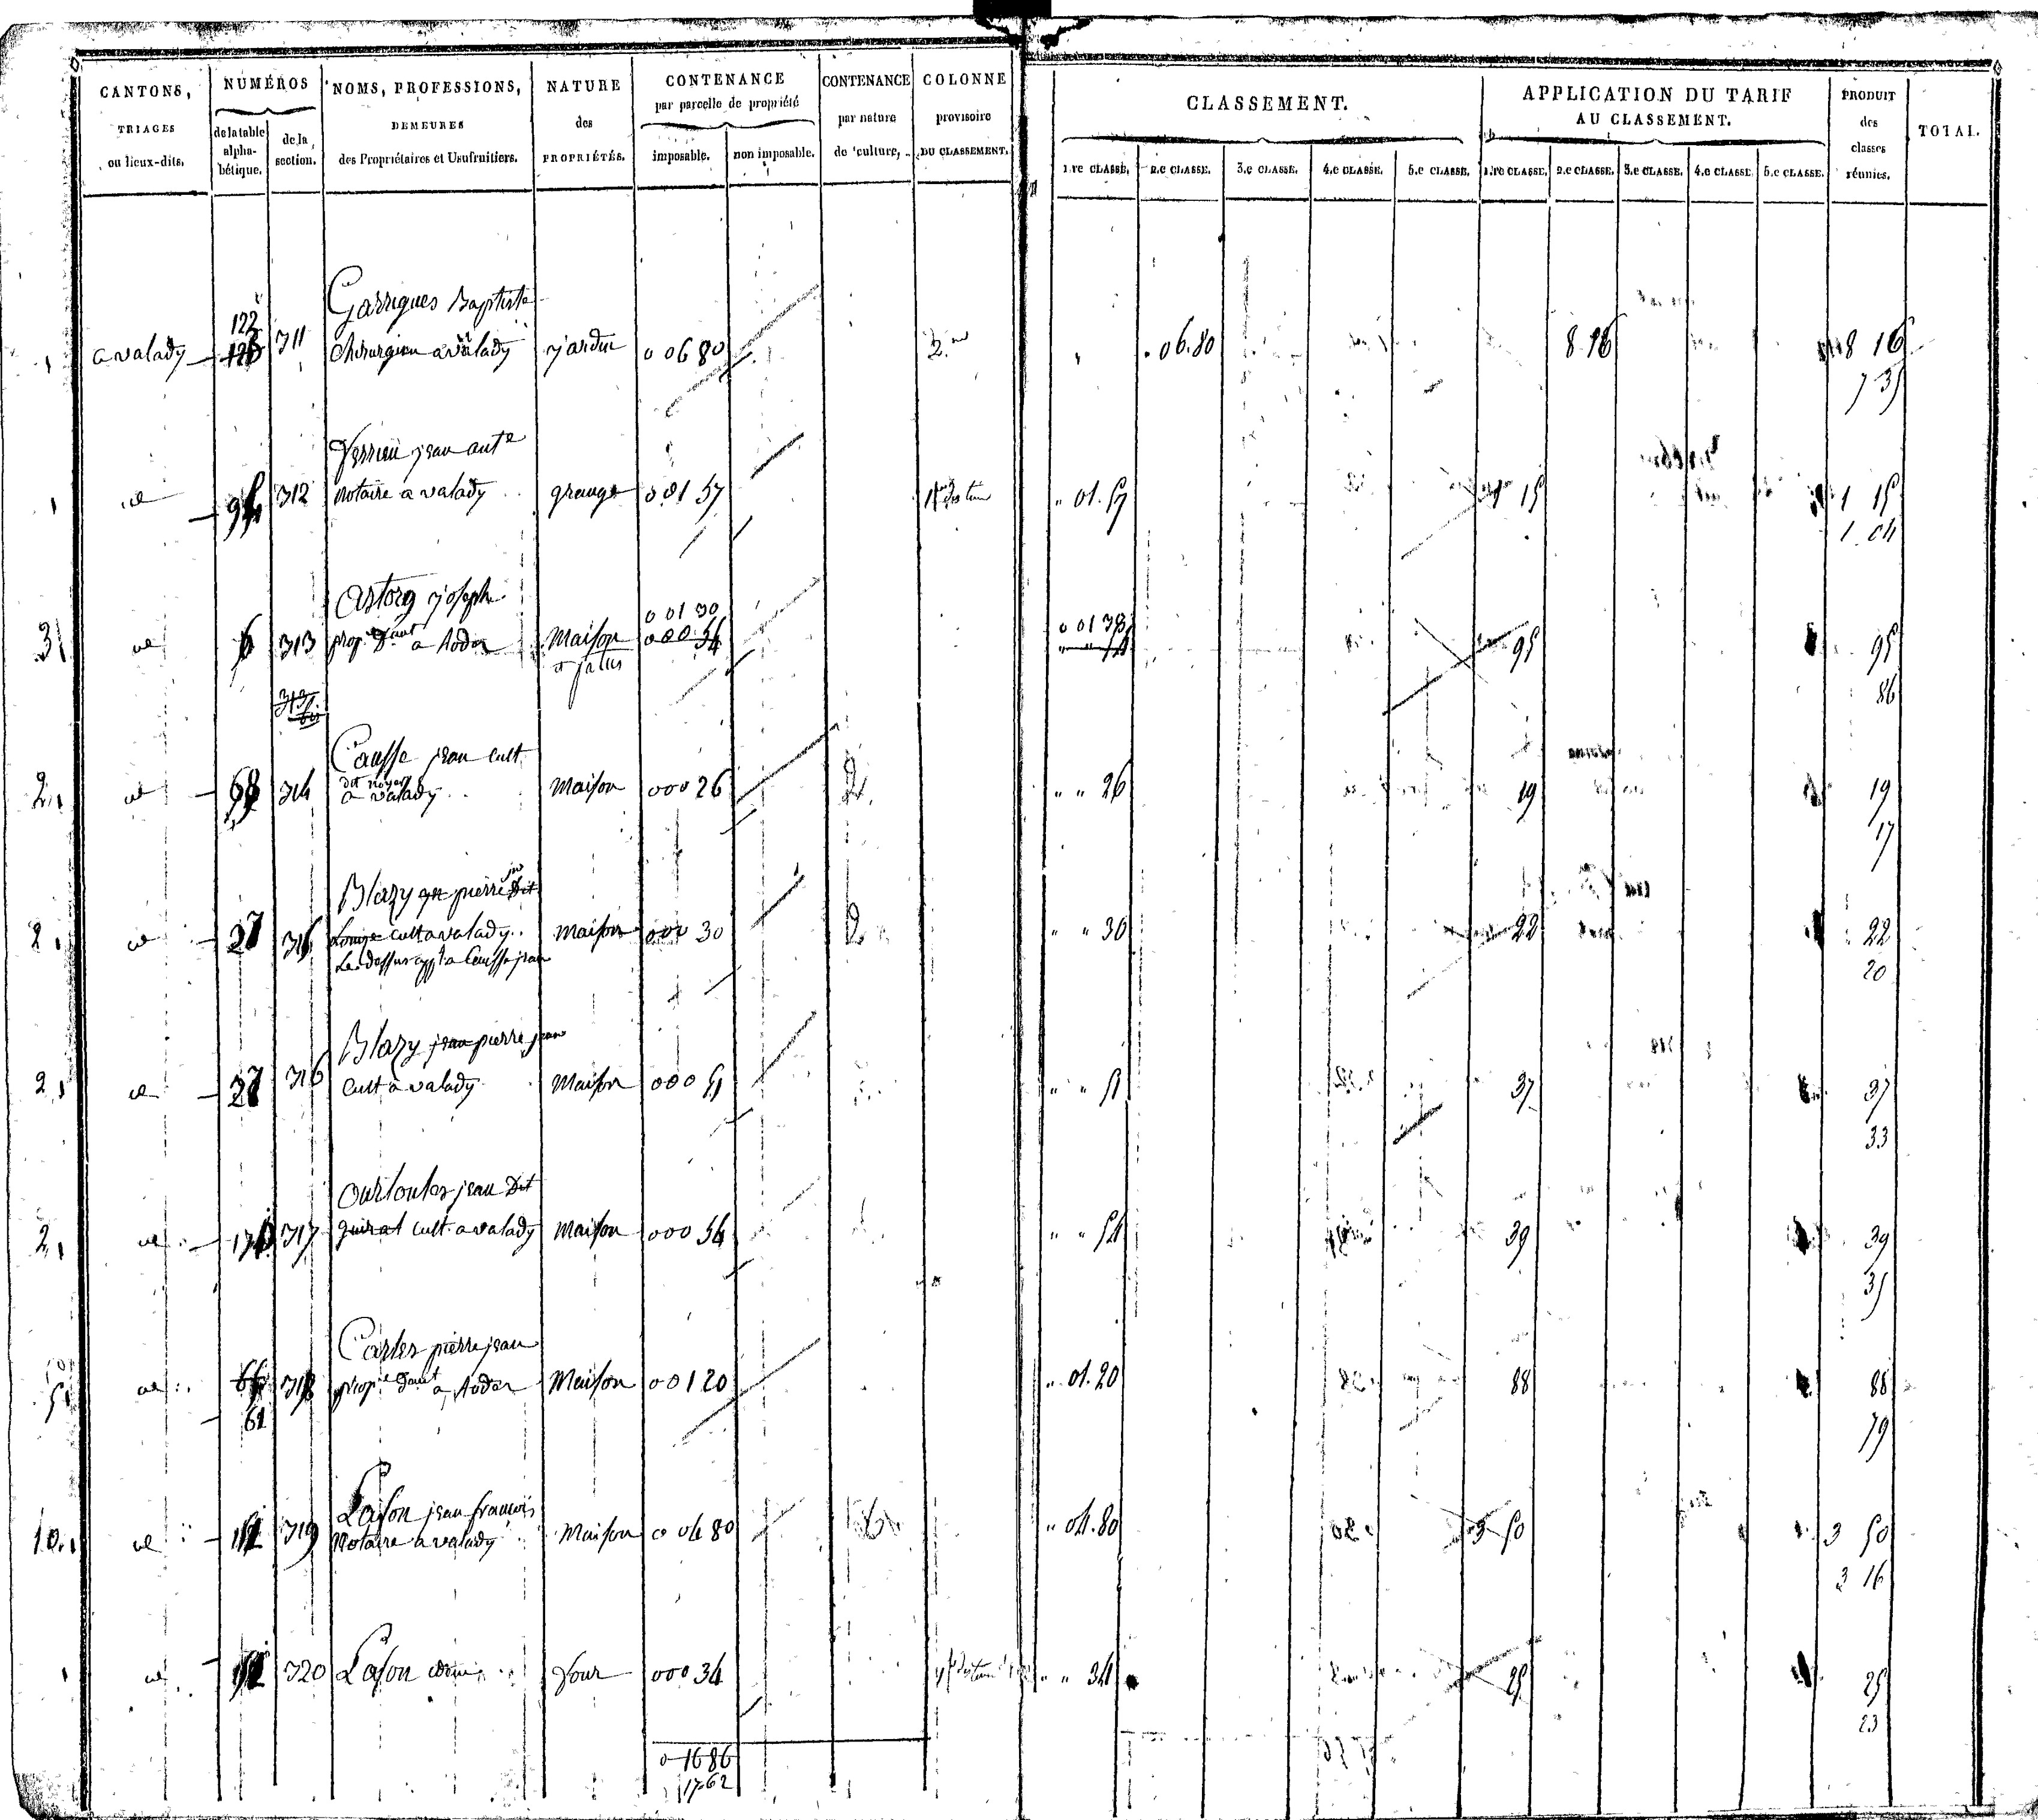 CANTONS, TRIAGES ou lieux-dits.
NUMÉROS de la table alphabétique. de la section.
NOMS, PROFESSIONS, DEMEURES des Propriétaires et Usufruitiers.
NATURE des PROPRIÉTÉS.
CONTENANCE par parcelle de propriété imposable. non imposable.
CONTENANCE par nature de culture,
COLONNE provisoire DU CLASSEMENT.
CLASSEMENT.
1.re CLASSE. 2.e CLASSE. 3.e CLASSE. 4.e CLASSE. 5.e CLASSE.
APPLICATION DU TARIF AU CLASSEMENT.
1.re CLASSE. 2.e CLASSE. 3.e CLASSE. 4.e CLASSE. 5.e CLASSE.
PRODUIT des classes réunies.
TOTAL.
Garrigues Baptiste
1 a valady 122 311 chirurgien a valady jardin 0 06 80 2. 06.80 8 16 8 16
7 35
jean ant.e
1 id 312 notaire a valady grange 0 01 57 01.57 1 15 1 15
1.04
Astorg joseph 0 01 30
3 id 6 313 prop.re à Rodez Maison 0 00 54 0 01 30 95 95
et patus
86
313 bis
Causse jean cult
dit
2 id 68 314 a valady Maison 0 00 26 " " 26 19 19
17
Blazy pierre jn dit
2 id 27 315 cult a valady Maison 0 00 30 " " 30 22 22
Le dessus app.t a Causse jean
20
Blazy jean pierre jean
2 id 27 316 cult à valady Maison 0 00 51 " " 51 37 37
33
jean dit
2 id 317 guirat cult. a valady Maison 0 00 54 " " 54 39 39
35
Carles pierre jean
5 id 318 prop.re à Rodez Maison 0 01 20 01.20 88 88
61
79
Lafon jean francois
10 id 319 Notaire a valady Maison 0 04 80 04.80 3 50 3 50
3 16
1 id 320 Lafon four 0 00 34 " " 34 25 25
23
0 16 86
17 62